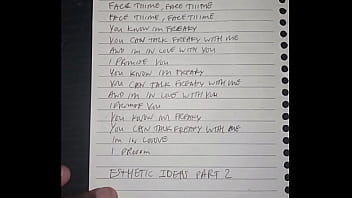 FACE TIIME, FACE TIIME
FACE TIIME, FACE TIIME
YOU KNOW IM FREAKY
YOU CAN TALK FREAKY WITH ME
AND IM IN LOVE WITH YOU
I PROMISE YOU
YOU KNOW IM FREAKY
YOU CAN TALK FREAKY WITH ME
AND IM IN LOVE WITH YOU
I PROMISE YOU
YOU KNOW IM FREAKY
YOU CAN TALK FREAKY WITH ME
IM IN LOOVE
I PROOM
ESTHETIC IDEAS PART 2